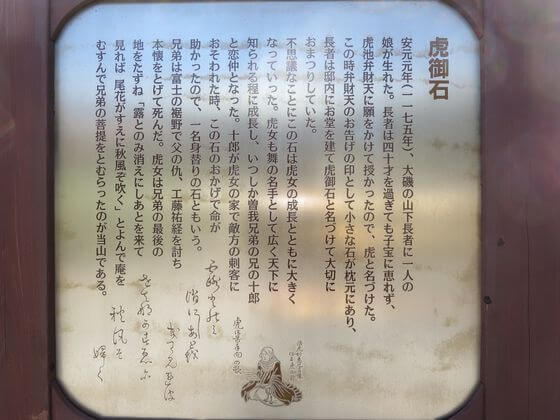 虎御石
安元元年（一一七五年）、大磯の山下長者に一人の
娘が生れた。長者は四十才を過ぎても子宝に恵れず、
虎池弁財天に願をかけて授かったので、虎と名づけた。
この時弁財天のお告げの印として小さな石が枕元にあり、
長者は邸内にお堂を建て虎御石と名づけて大切に
おまつりしていた。
不思議なことにこの石は虎女の成長とともに大きく
なっていった。虎女も舞の名手として広く天下に
知られる程に成長し、いつしか曽我兄弟の兄の十郎
と恋仲となった。十郎が虎女の家で敵方の刺客に
おそわれた時、この石のおかげで命が
助かったので、一名身替りの石ともいう。
兄弟は富士の裾野で父の仇、工藤祐経を討ち
本懐をとげて死んだ。虎女は兄弟の最後の
地をたずね「露とのみ消えにしあとを来て
見れば 尾花がすえに秋風ぞ吹く」とよんで庵を
むすんで兄弟の菩提をとむらったのが当山である。